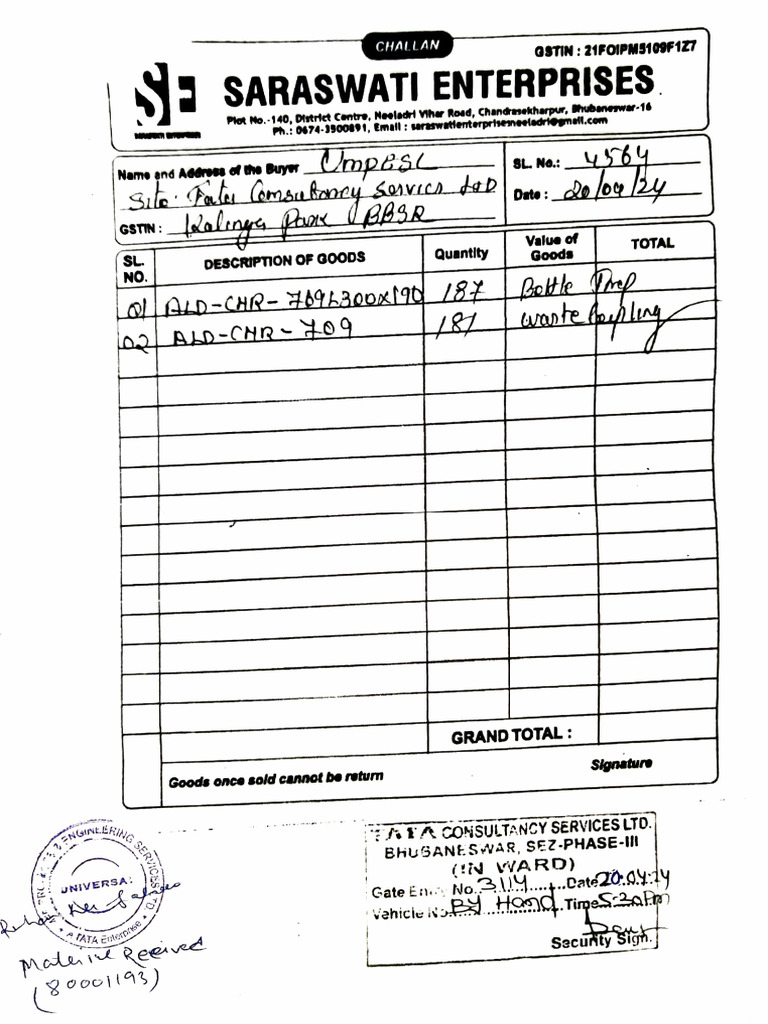 CHALLAN
GSTIN : 21FOIPM5109F1Z7
SARASWATI ENTERPRISES
Plot No.-140, District Centre, Neeladri Vihar Road, Chandrasekharpur, Bhubaneswar-16
Ph.: 0674-3500891, Email : saraswatienterprisesneeladri@gmail.com
Name and Address of the Buyer UMPESL
SL. No.: 4564
Site: Tata Consultancy Services Ltd
Date : 20/04/24
GSTIN : Kalinga Park BBSR
SL. NO. DESCRIPTION OF GOODS Quantity Value of Goods TOTAL
01 ALD-CHR-769L300x190 187 Bottle Trap
02 ALD-CHR-709 181 Waste Coupling
GRAND TOTAL :
Goods once sold cannot be return
Signature
ENGINEERING SERVICES LTD.
UNIVERSAL
A TATA Enterprise
Material Received
(80001193)
TATA CONSULTANCY SERVICES LTD.
BHUBANESWAR, SEZ-PHASE-III
(IN WARD)
Gate Entry No. 3114 Date 20.04.24
Vehicle No. BY Hand Time 5:30 Pm
Security Sign.